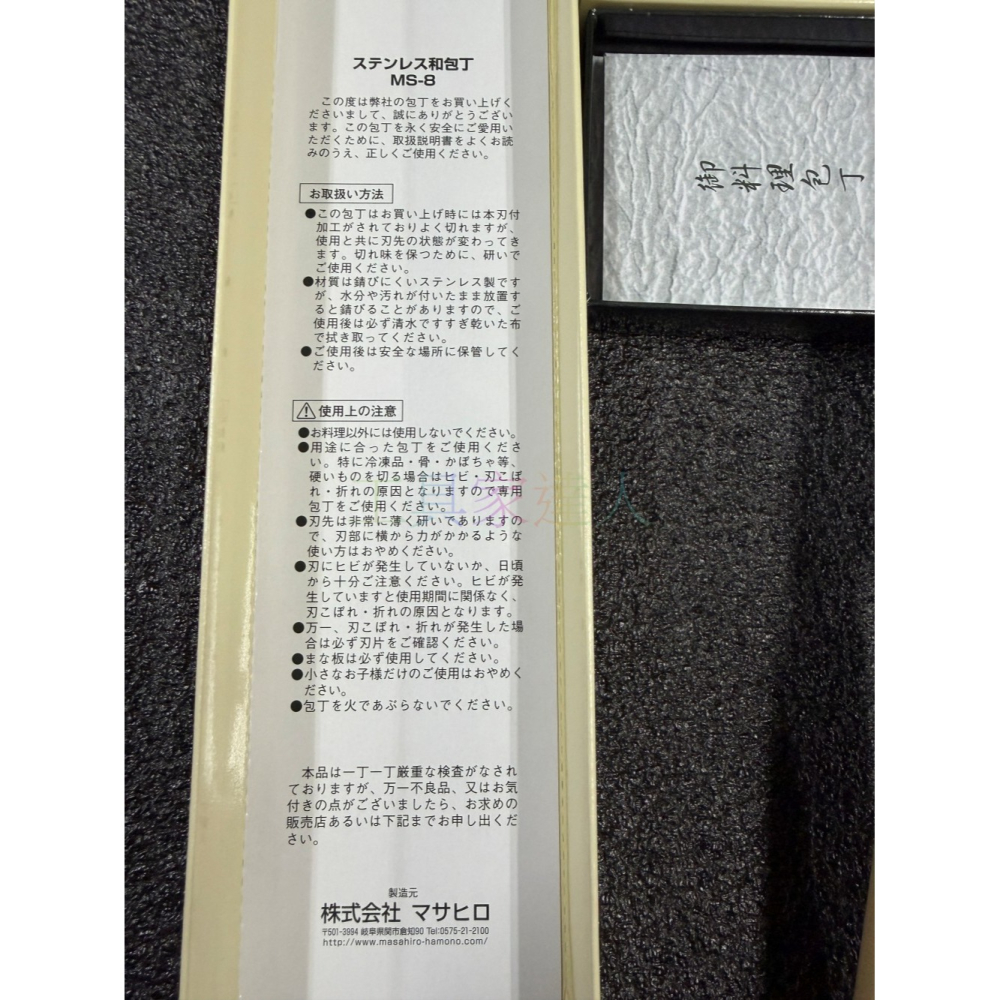 ステンレス和包丁
MS-8
この度は弊社の包丁をお買い上げく
ださいまして、誠にありがとうござい
ます。この包丁を永く安全にご愛用い
ただくために、取扱説明書をよくお読
みのうえ、正しくご使用ください。
お取扱い方法
●この包丁はお買い上げ時には本刃付
加工がされておりよく切れますが、
使用と共に刃先の状態が変わってき
ます。切れ味を保つために、研いで
ご使用ください。
●材質は錆びにくいステンレス製です
が、水分や汚れが付いたまま放置す
ると錆びることがありますので、ご
使用後は必ず清水ですすぎ乾いた布
で拭き取ってください。
●ご使用後は安全な場所に保管してく
ださい。
⚠使用上の注意
●お料理以外には使用しないでください。
●用途に合った包丁をご使用くださ
い。特に冷凍品・骨・かぼちゃ等、
硬いものを切る場合はヒビ・刃こぼ
れ・折れの原因となりますので専用
包丁をご使用ください。
●刃先は非常に薄く研いでありますの
で、刃部に横から力がかかるような
使い方はおやめください。
●刃にヒビが発生していないか、日頃
から十分ご注意ください。ヒビが発
生していますと使用期間に関係なく、
刃こぼれ・折れの原因となります。
●万一、刃こぼれ・折れが発生した場
合は必ず刃片をご確認ください。
●まな板は必ず使用してください。
●小さなお子様だけのご使用はおやめく
ださい。
●包丁を火であぶらないでください。
本品は一丁一丁厳重な検査がなされ
ておりますが、万一不良品、又はお気
付きの点がございましたら、お求めの
販売店あるいは下記までお申し出くだ
さい。
製造元
株式会社 マサヒロ
〒501-3994 岐阜県関市倉知90 Tel:0575-21-2100
http://www.masahiro-hamono.com/
御料理包丁
工具家達人